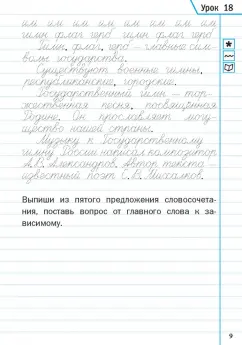 Урок 18
им им им им им им им им
гимн флаг герб гимн флаг герб
Гимн, флаг, герб – главные сим-
волы государства.
Существуют военные гимны,
республиканские, городские.
Государственный гимн – тор-
жественная песня, посвящённая
Родине. Он прославляет могу-
щество нашей страны.
Музыку к Государственному
гимну России написал композитор
А. В. Александров. Автор текста –
известный поэт С. В. Михалков.
Выпиши из пятого предложения словосочета-
ния, поставь вопрос от главного слова к за-
висимому.
9